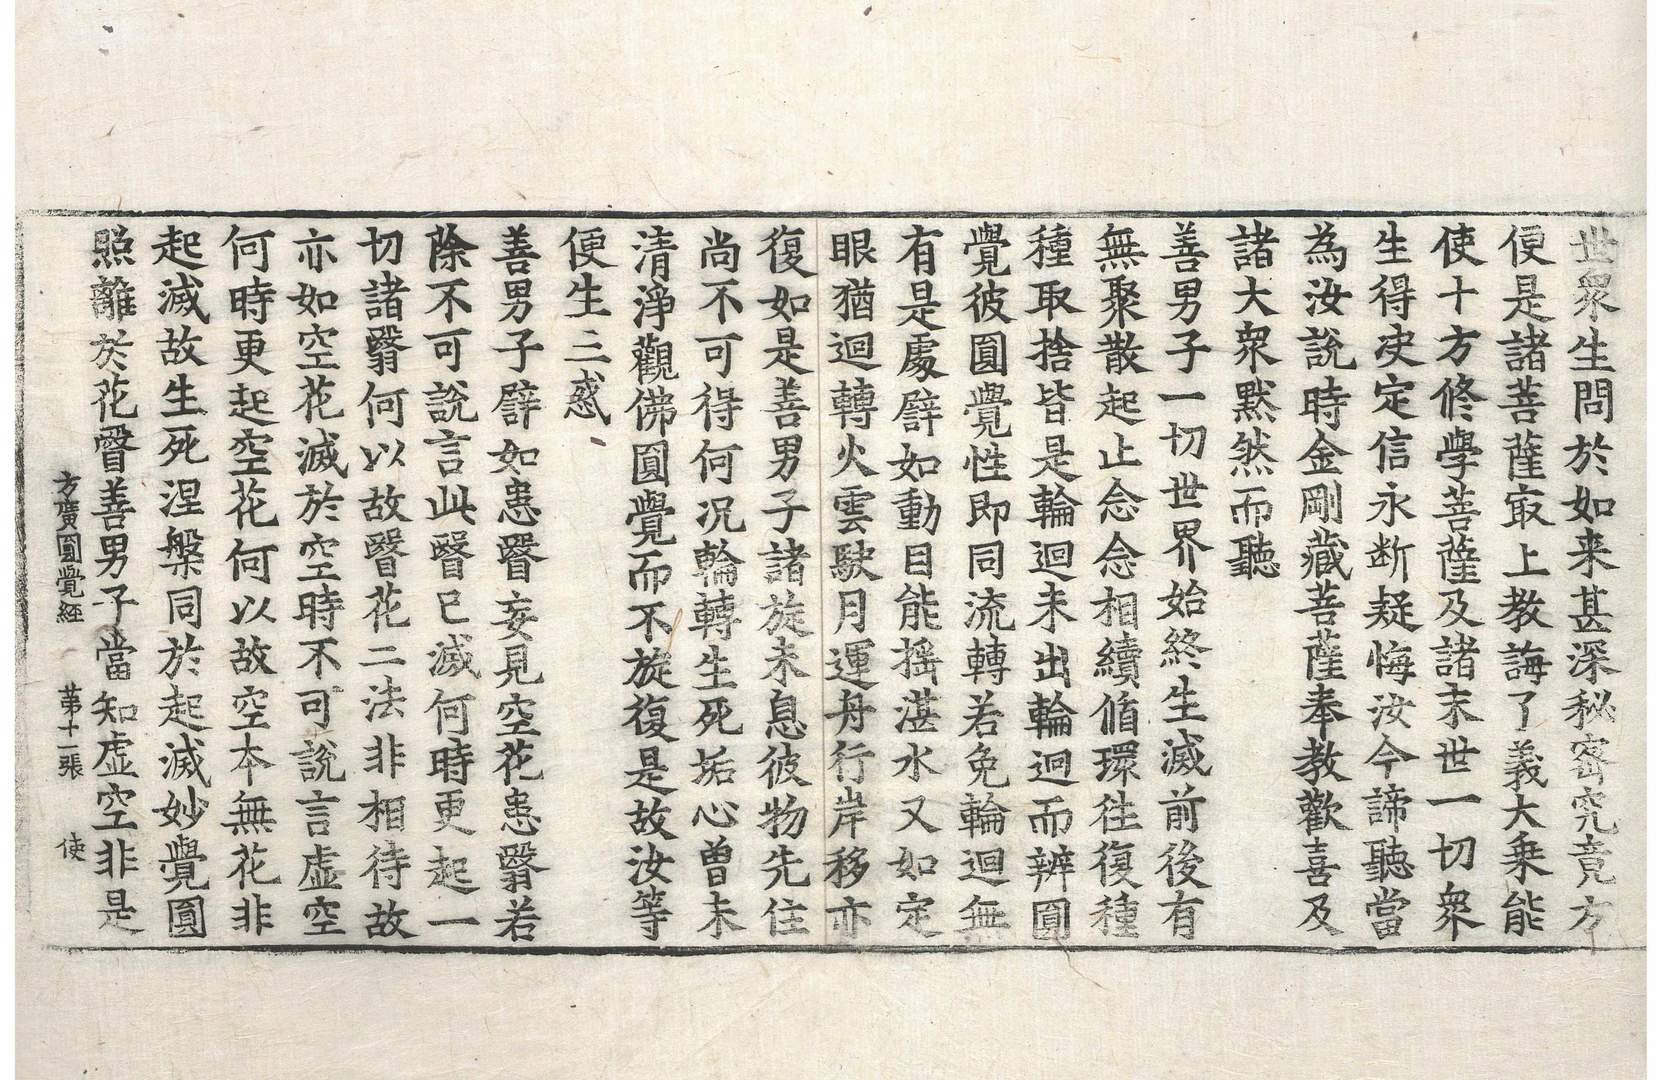 世衆生問於如来甚深秘密究竟方
便是諸菩薩㝡上教誨了義大乗能
使十方修學菩薩及諸末世一切衆
生得决定信永断疑悔汝今諦聽當
為汝說時金剛藏菩薩奉教歡喜及
諸大衆默然而聽
善男子一切世界始終生滅前後有
無聚散起止念念相續循環往復種
種取捨皆是輪迴未出輪迴而辨圓
覺彼圓覺性即同流轉若免輪迴無
有是處譬如動目能搖湛水又如定
眼猶迴轉火雲駛月運舟行岸移亦
復如是善男子諸旋未息彼物先住
尚不可得何况輪轉生死垢心曾未
清淨觀佛圓覺而不旋復是故汝等
便生三惑
善男子譬如患瞖妄見空花患翳若
除不可說言此瞖已滅何時更起一
切諸翳何以故瞖花二法非相待故
亦如空花滅於空時不可說言虛空
何時更起空花何以故空本無花非
起滅故生死涅槃同於起滅妙覺圓
照離於花瞖善男子當知虛空非是
方廣圓覺経 苐十一張 使